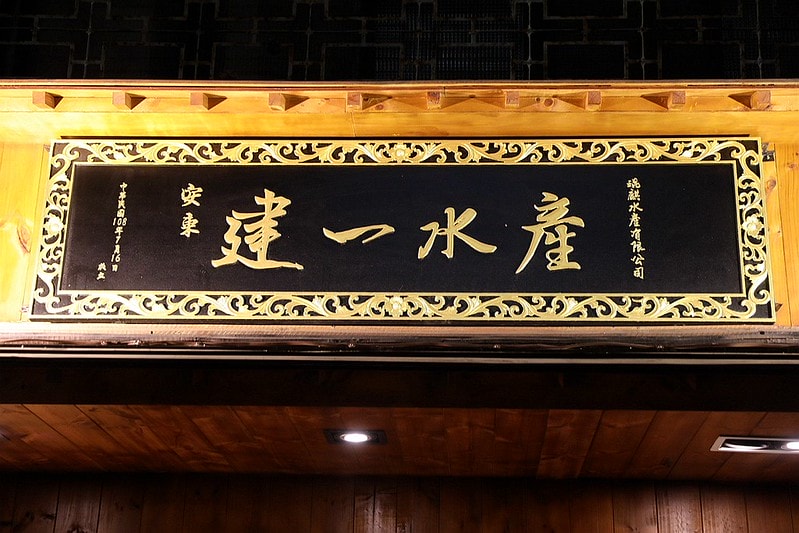 中華民國108年7月16日 成立
安東
建一水產
琨麒水產有限公司